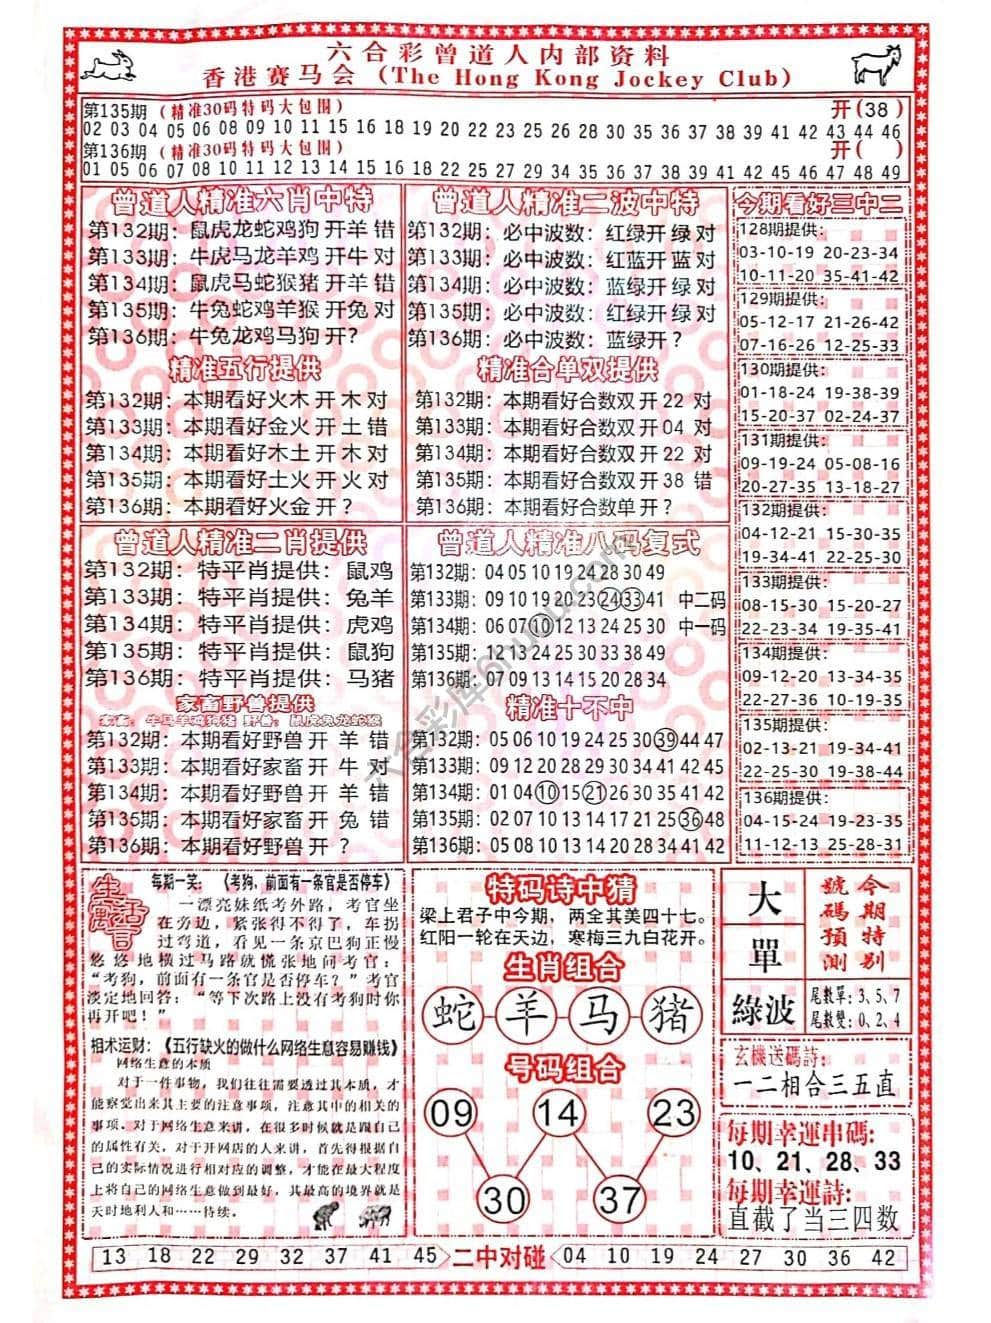 六合彩曾道人内部资料
香港赛马会（The Hong Kong Jockey Club）
第135期（精准30码特码大包围） 开(38)
02 03 04 05 06 08 09 10 11 15 16 18 19 20 22 23 25 26 28 30 35 36 37 38 39 41 42 43 44 46
第136期（精准30码特码大包围） 开( )
01 05 06 07 08 10 11 12 13 14 15 16 18 19 20 21 22 24 28 29 30 34 35 37 42 45 46 47 48 49
曾道人精准六肖中特
第132期：鼠虎龙蛇鸡狗开羊 错
第133期：牛虎马龙羊鸡开牛 对
第134期：鼠虎马蛇猴猪开羊 错
第135期：牛兔蛇鸡羊猴开兔 对
第136期：牛兔龙鸡马狗开？
精准五行提供
第132期：本期看好火木开木 对
第133期：本期看好金火开土 错
第134期：本期看好木土开木 对
第135期：本期看好土火开火 对
第136期：本期看好火金开？
曾道人精准二波中特
第132期：必中波数：红绿开 绿 对
第133期：必中波数：红蓝开 蓝 对
第134期：必中波数：蓝绿开 绿 对
第135期：必中波数：红绿开 绿 对
第136期：必中波数：蓝绿开？
精准合单双提供
第132期：本期看好合数双开22 对
第133期：本期看好合数双开04 对
第134期：本期看好合数双开22 对
第135期：本期看好合数双开38 错
第136期：本期看好合数单开？
今期看好三中二
128期提供：
03-10-19 20-23-34
10-11-20 35-41-42
129期提供：
05-12-17 21-26-42
07-16-26 12-25-33
130期提供：
01-18-24 19-38-39
15-20-37 02-24-37
131期提供：
09-19-24 05-08-16
20-27-35 13-18-27
132期提供：
04-12-21 15-30-35
19-34-41 22-25-30
133期提供：
08-15-30 15-20-27
22-23-34 19-35-41
134期提供：
09-12-20 13-19-35
22-27-36 10-20-35
135期提供：
02-13-21 19-34-41
22-25-30 19-38-44
136期提供：
04-15-24 19-23-35
11-12-13 25-28-31
曾道人精准二肖提供
第132期：特平肖提供：鼠鸡
第133期：特平肖提供：兔羊
第134期：特平肖提供：虎鸡
第135期：特平肖提供：鼠狗
第136期：特平肖提供：马猪
家畜野兽提供
家畜：牛马羊鸡狗猪 野兽：鼠虎兔龙蛇猴
第132期：本期看好野兽开 羊 错
第133期：本期看好家畜开 牛 对
第134期：本期看好野兽开 羊 错
第135期：本期看好家畜开 兔 错
第136期：本期看好野兽开 ？
曾道人精准八码复式
第132期：04 05 10 19 24 28 30 49
第133期：09 10 19 20 23 24 33 41 中二码
第134期：06 07 10 12 13 24 25 30 中一码
第135期：12 13 24 25 30 33 38 49
第136期：07 09 13 14 15 20 28 34
精准十不中
第132期：05 06 10 19 24 25 30 39 44 47
第133期：09 12 20 28 29 30 34 41 42 45
第134期：01 04 10 15 21 26 30 35 41 42
第135期：02 07 10 13 14 17 21 25 36 48
第136期：05 08 10 13 14 20 28 34 41 42
生活寓言
每期一笑：《考狗，前面有一条官是否停车》
一漂亮妹纸考外路，考官坐
在旁边，紧张得不得了，车拐
过弯道，看见一条京巴狗正慢
悠悠地横过马路就慌张地问考官：
“考狗，前面有一条官是否停车？”考官
淡定地回答：“等下次路上没有考狗时你
再开吧！”
相术运财：《五行缺火的做什么网络生意容易赚钱》
网络生意的本质
对于一件事物，我们往往需要透过其本质，才
能察觉出来其主要的注意事项，注意其中的相关的
事项。对于网络生意来讲，在很多时候就是跟自己
的属性有关，对于开网店的人来讲，首先得根据自
己的实际情况进行相对应的调整，才能在最大程度
上将自己的网络生意做到最好，其最高的境界就是
天时地利人和……待续。
特码诗中猜
梁上君子中今期，两全其美四十七。
红阳一轮在天边，寒梅三九白花开。
生肖组合
蛇 羊 马 猪
号码组合
09 14 23
30 37
大
單
綠波
今期特别
號碼預测
尾數單：3、5、7
尾數雙：0、2、4
玄機送碼詩：
一二相合三五直
每期幸運串碼：
10、21、28、33
每期幸運詩：
直截了当三四数
13 18 22 29 32 37 41 45 二中对碰 04 10 19 24 27 30 36 42
六合彩库6huotu.com